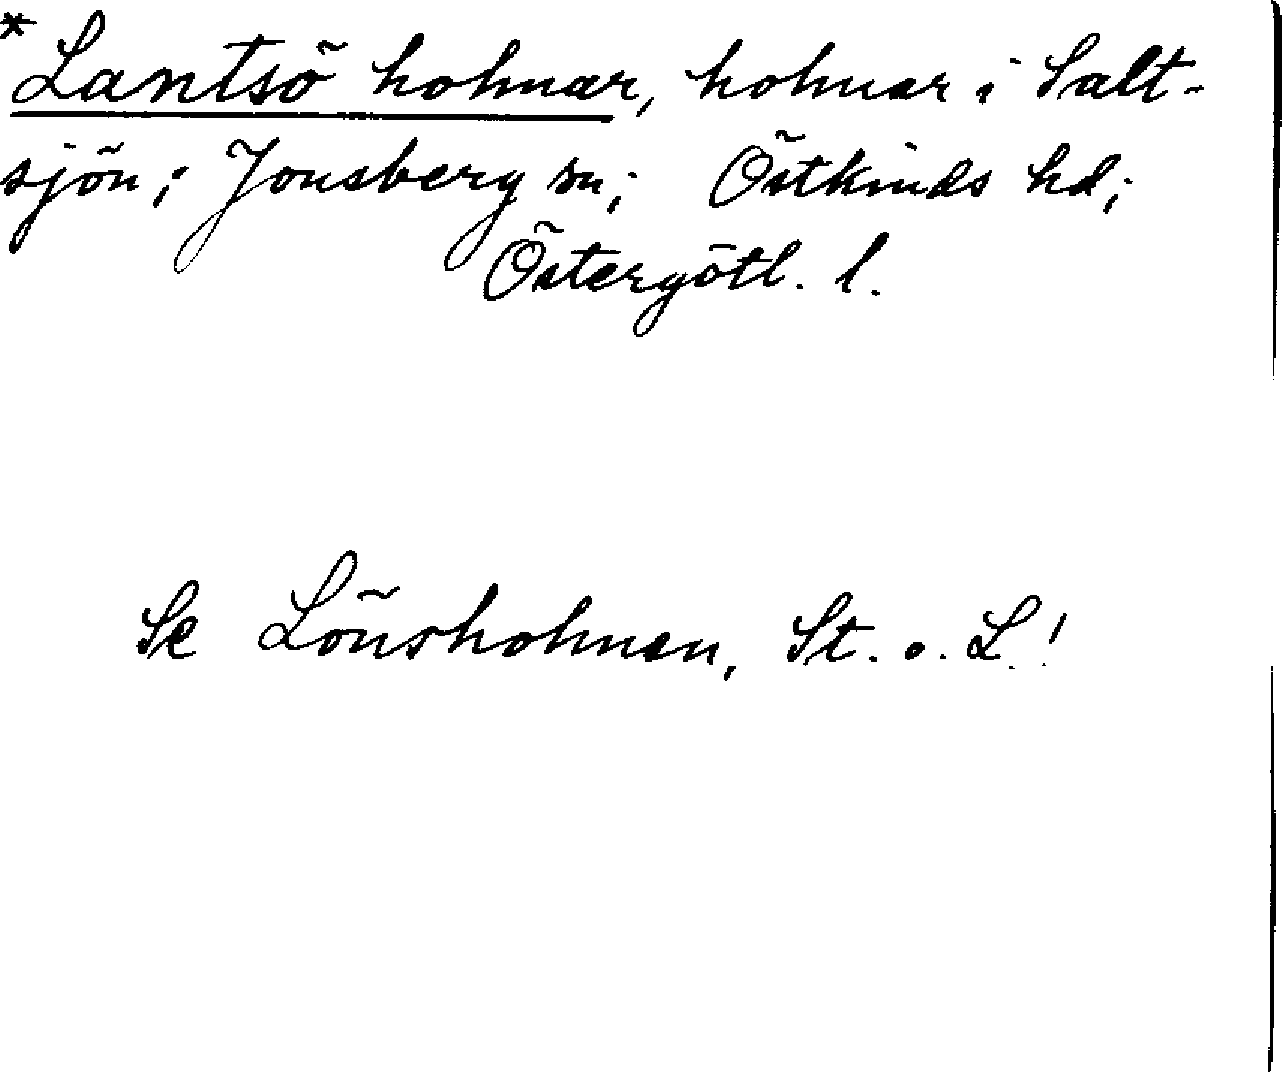 *Lantsö holmar, holmar i Salt-
sjön; Jonsberg sn; Östkinds hd;
Östergötl. l.
Se Lönsholmen, St. o. L.!